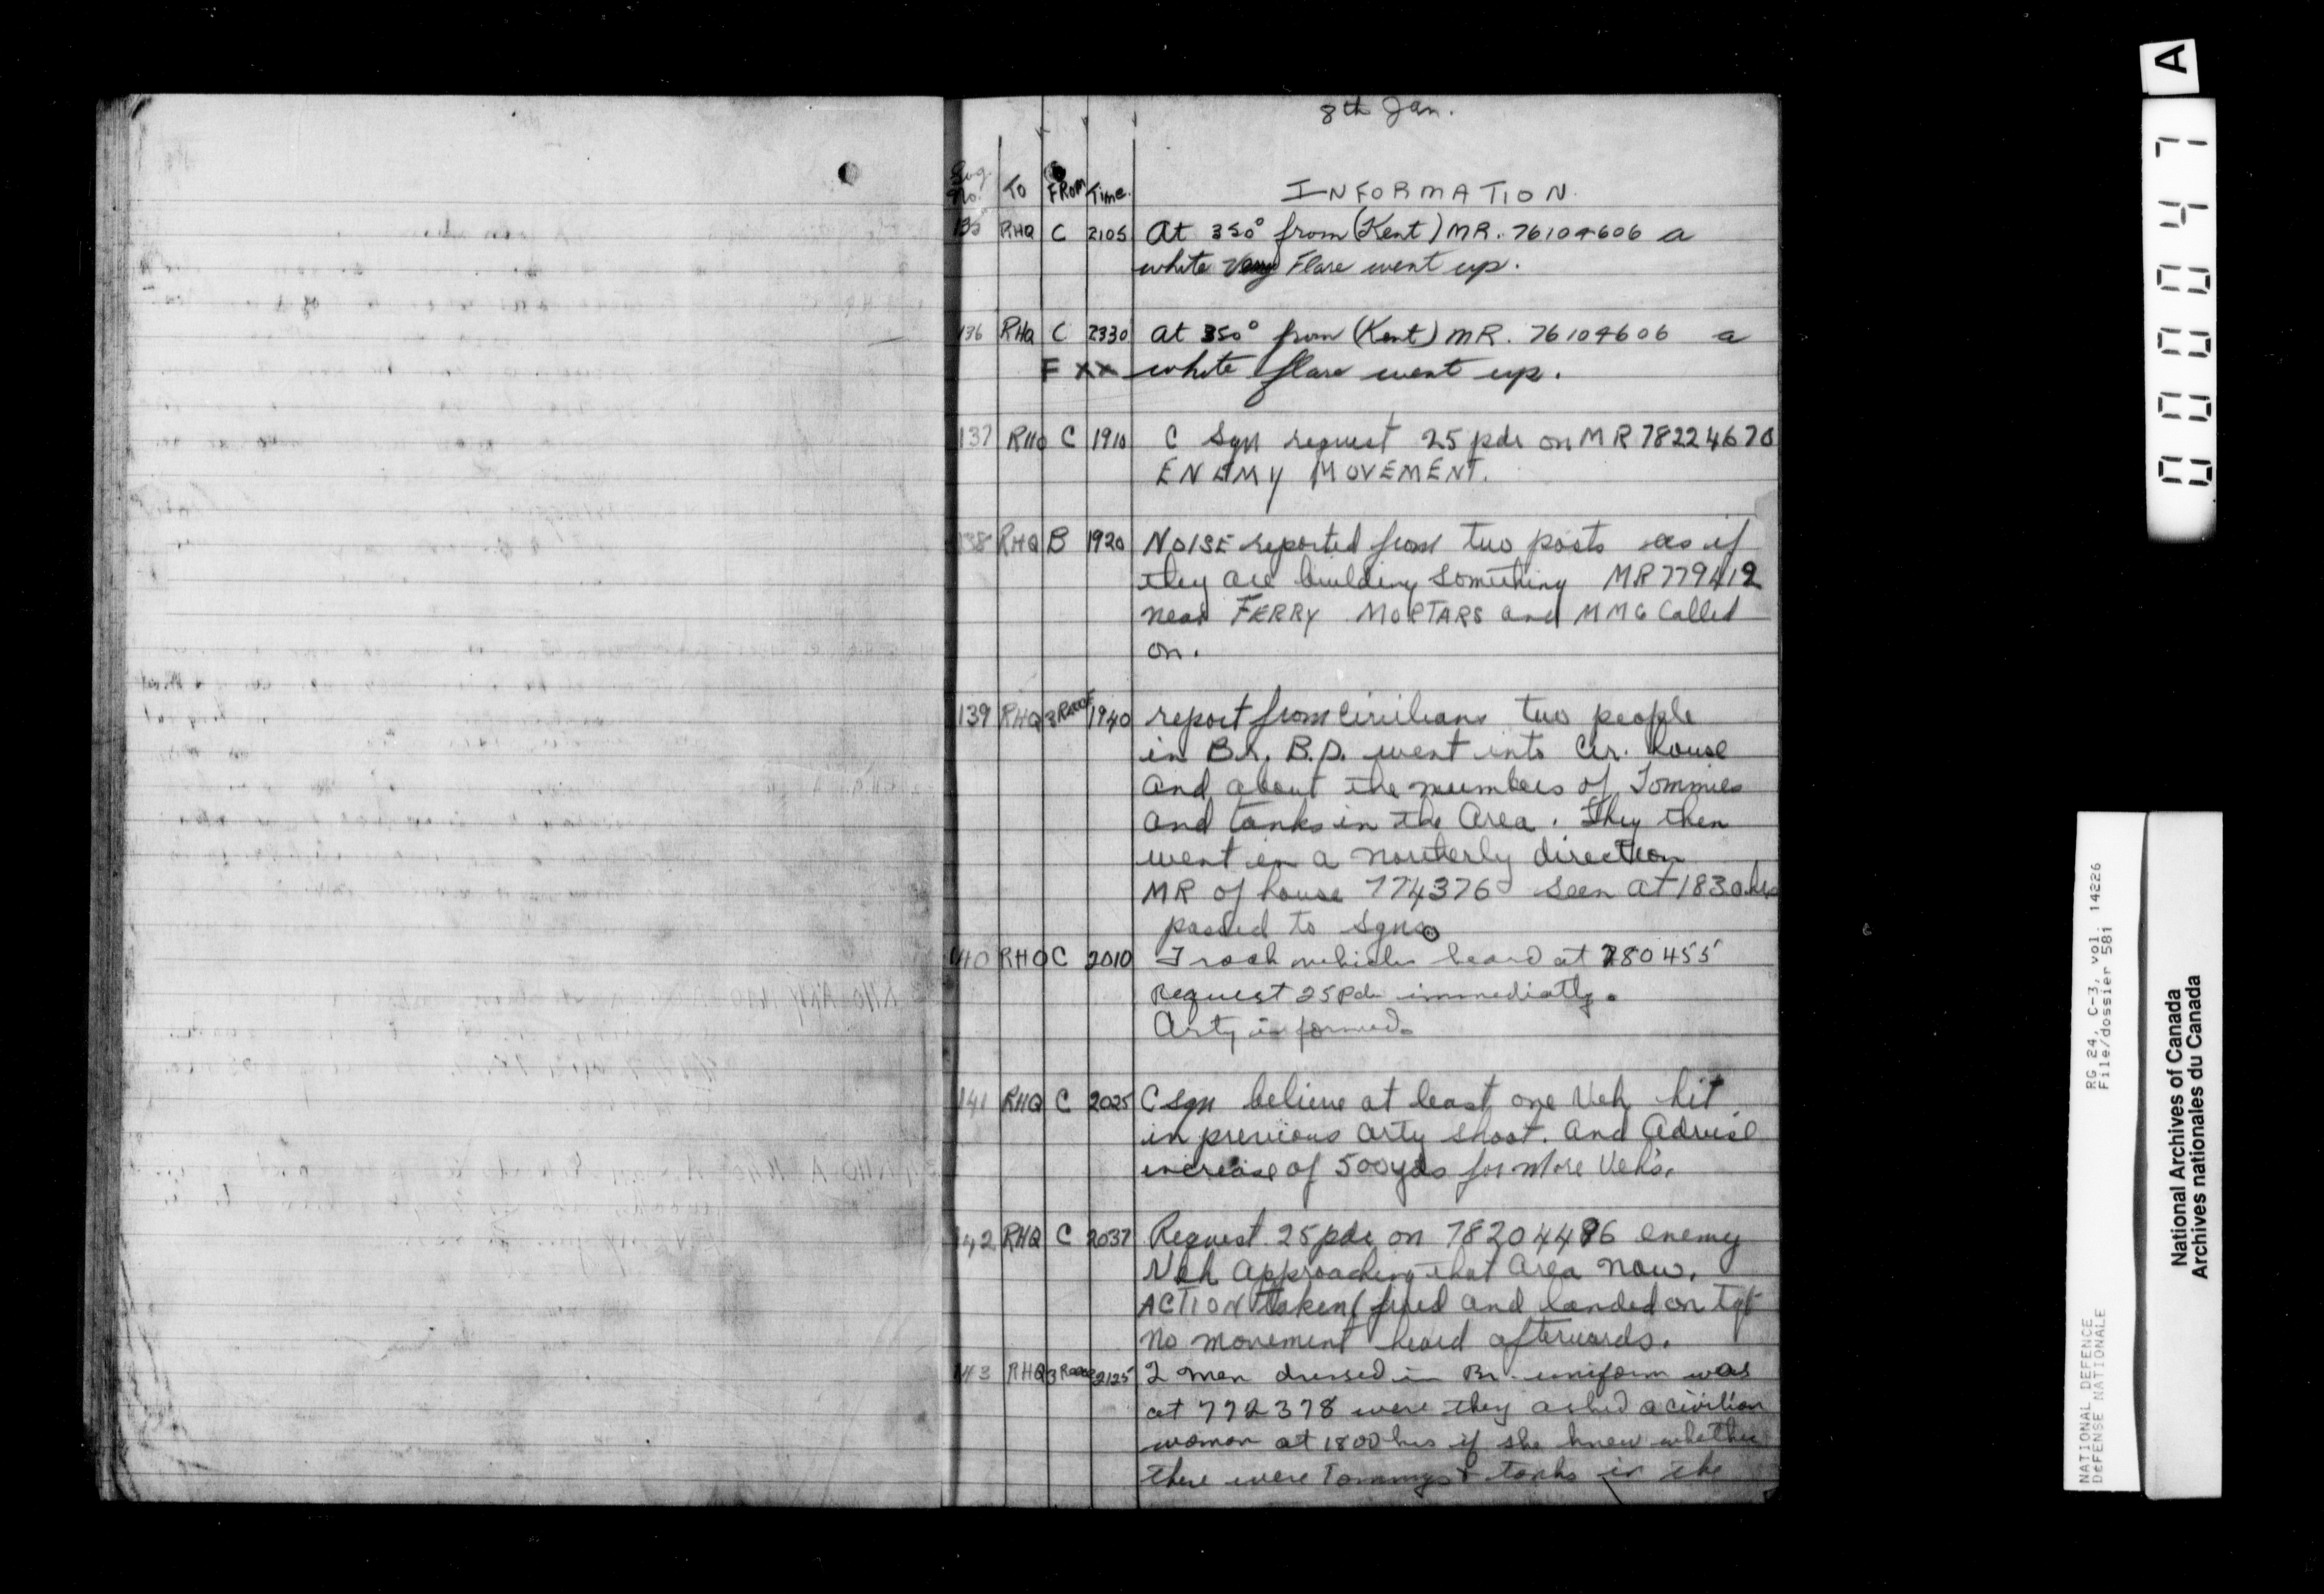 8th Jan.
Log No. To FROM Time. INFORMATION.
135 RHQ C 2105 At 350° from (Kent) MR. 76104606 a
white Very Flare went up.
136 RHQ C 2330 at 350° from (Kent) MR. 76104606 a
F xx white flare went up.
137 RHQ C 1910 C Sqn request 25 pdr on MR 78224670
ENEMY MOVEMENT.
138 RHQ B 1920 NOISE reported from two posts as if
they are building something MR 779412
near FERRY MORTARS and MMG Called
on.
139 RHQ 1940 report from Civilians two people
in Br. B.D. went into Civ. house
and about the numbers of Tommies
and tanks in the Area. They then
went in a northerly direction
MR of house 774376 seen at 1830 hrs
passed to Sqns.
140 RHQ C 2010 Track vehicles heard at 780455
Request 25 Pdr immediatly.
Arty informed.
141 RHQ C 2025 C sqn believe at least one Veh hit
in previous arty shoot. And Advise
increase of 500 yds for More Veh's.
142 RHQ C 2037 Request 25 pdr on 78204496 enemy
Veh approaching that Area now.
ACTION taken (fired and landed on tgt
No movement heard afterwards.
143 RHQ 2125 2 men dressed in Br. uniform was
at 772378 were they asked a civilian
woman at 1800 hrs if she knew whether
there were Tommys & tanks in the
A
0000047
RG 24, C-3, vol. 14226
File/dossier 581
NATIONAL DEFENCE
DEFENSE NATIONALE
National Archives of Canada
Archives nationales du Canada